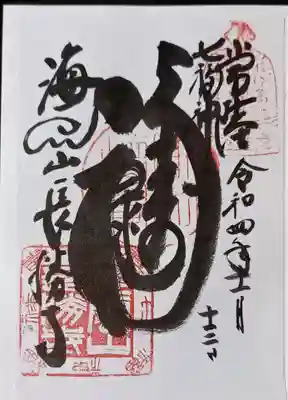 常陸
七福神
令和四年十一月
十二日
福禄寿
海雲山長勝寺